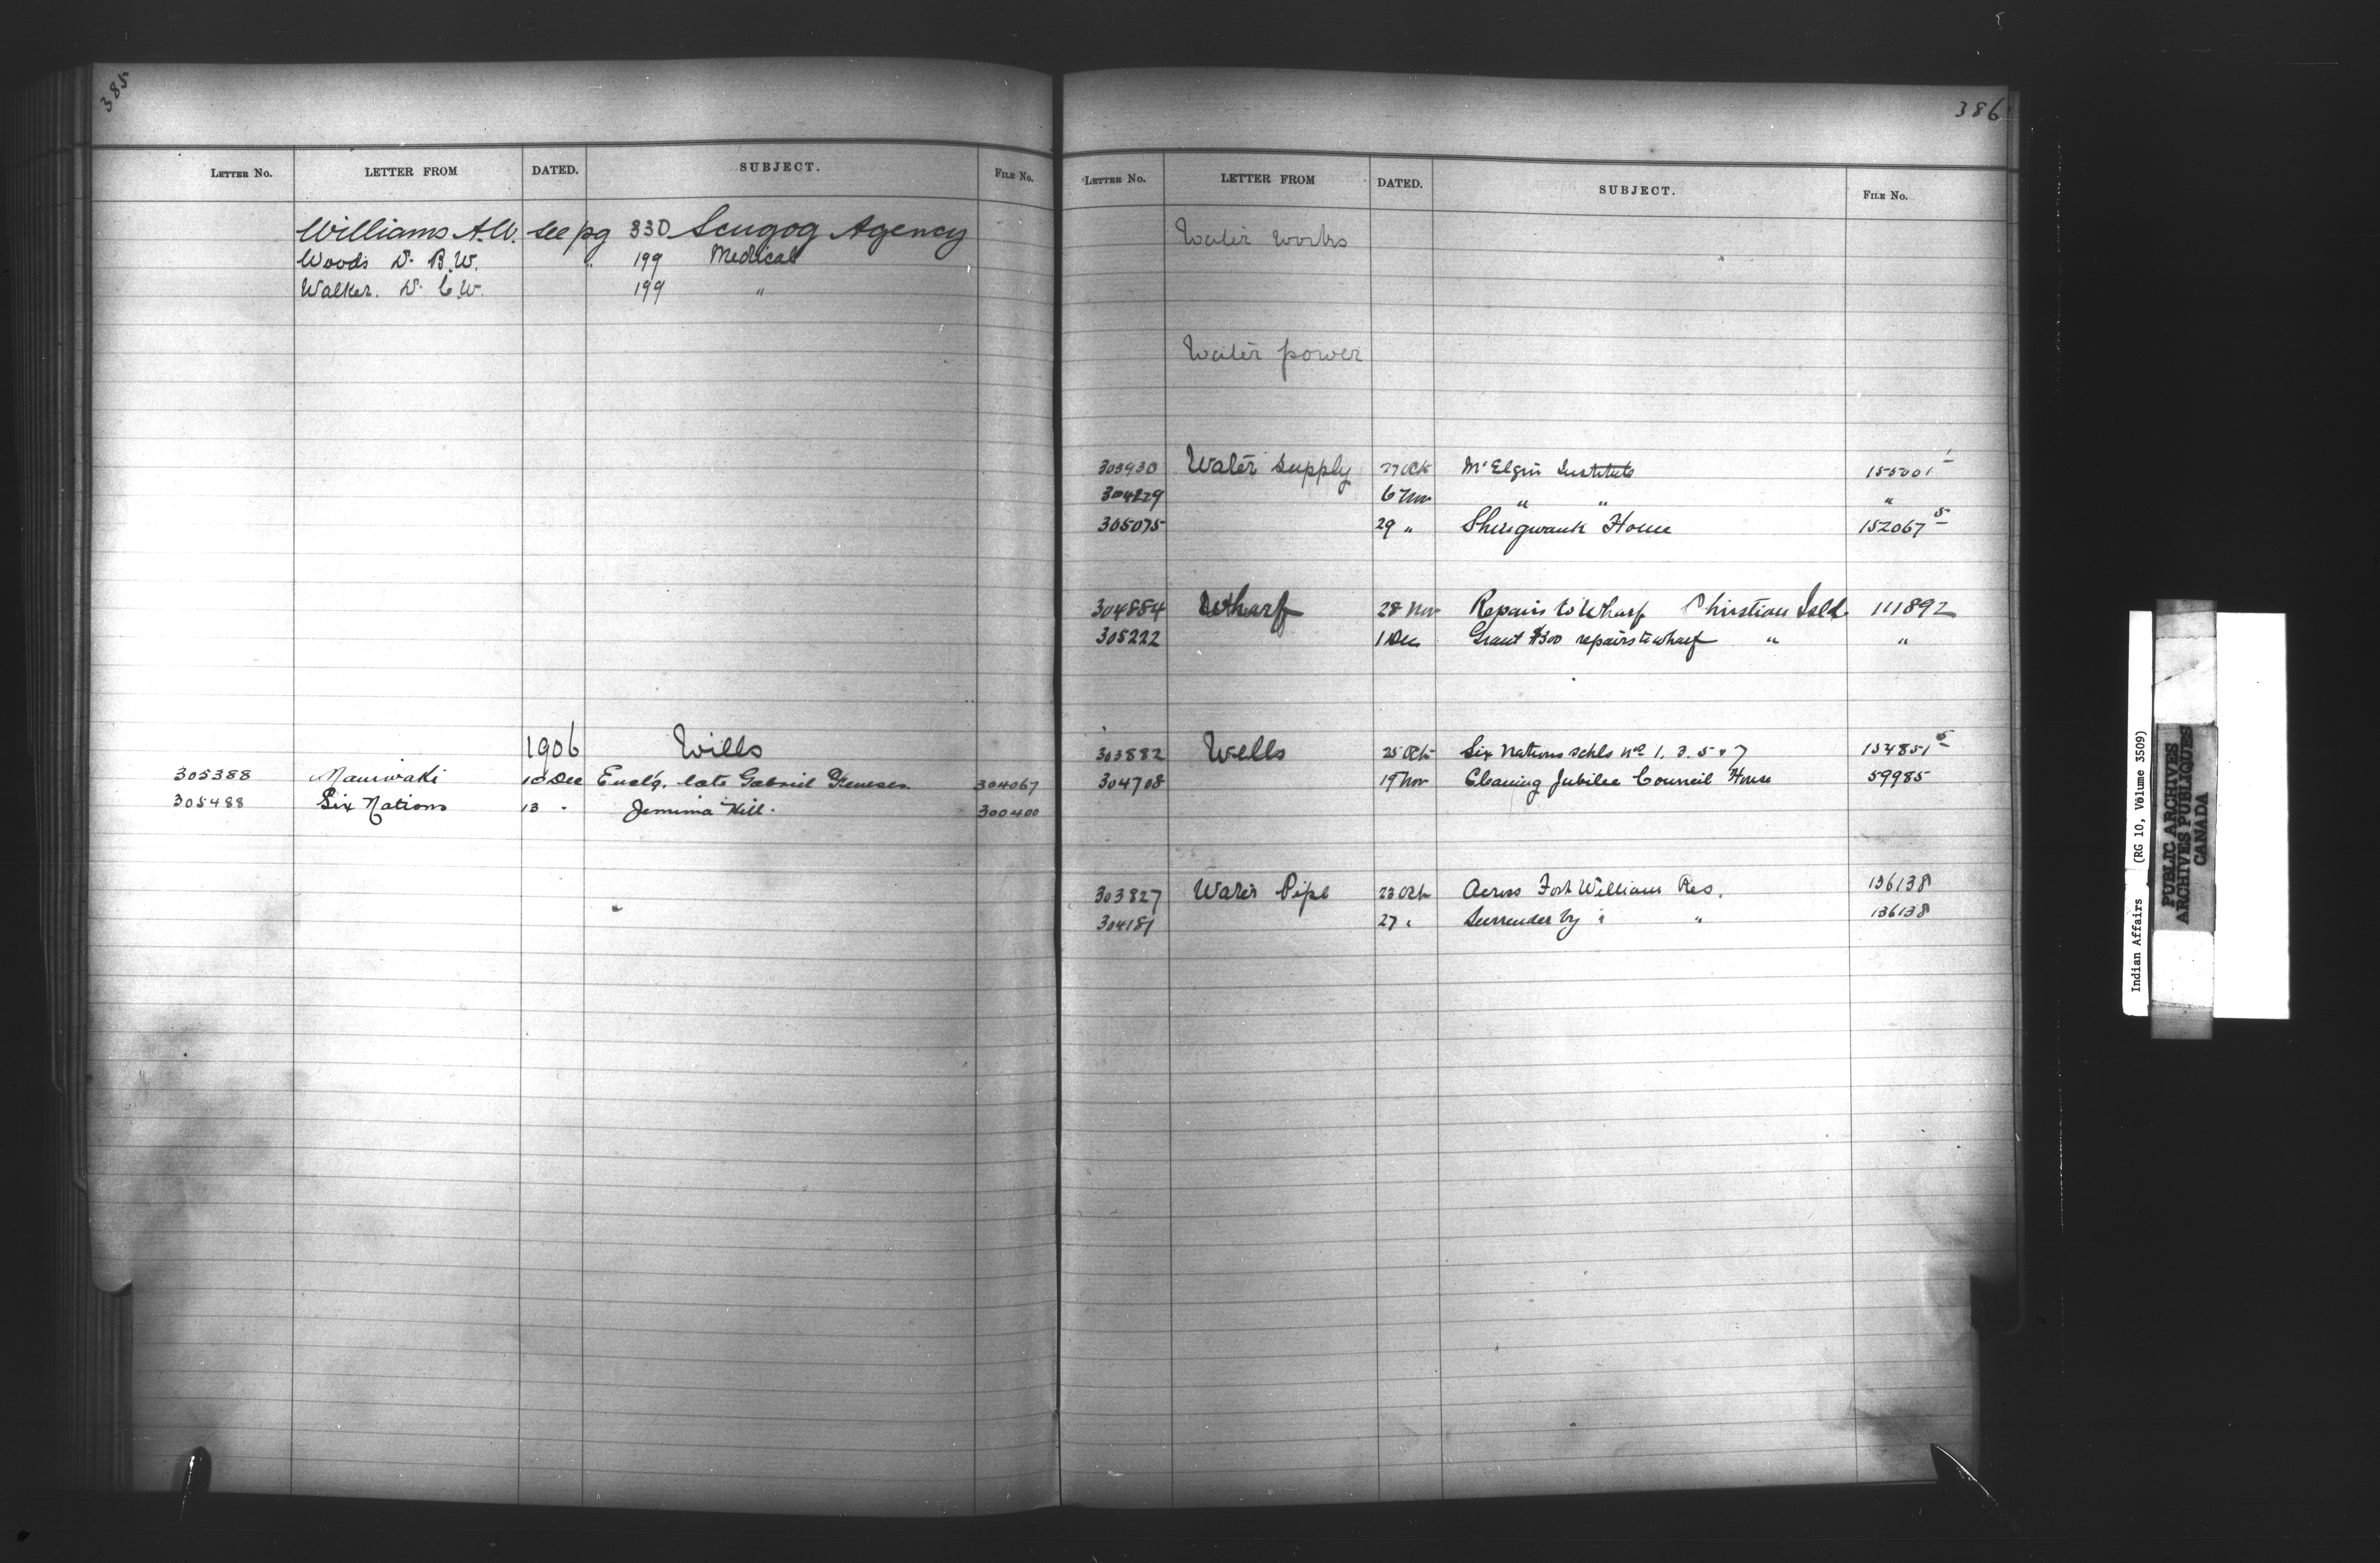 385
LETTER No. LETTER FROM DATED. SUBJECT. FILE No.
Williams A.W. see pg 330 Scugog Agency
Woods Dr B.W. " 199 Medical
Walker. Dr C.W. 199 "
1906 Wills
305388 Maniwaki 10 Dec Encl'g. late Gabriel 304067
305488 Six Nations 13 " Jemima Hill. 300400
386
LETTER No. LETTER FROM DATED. SUBJECT. FILE No.
Water works
Water power
303930 Water supply 27 Oct Mt Elgin Institute 155001 1
304229 6 Nov " " "
305075 29 " Shingwauk Home 152067 5
304884 Wharf 28 Nov Repairs to Wharf Christian Isld. 111892
305222 1 Dec Grant $300 repairs to wharf " "
303882 Wells 25 Oct Six Nations schls No 1. 3. 5 & 7 154851 5
304708 19 Nov Cleaning Jubilee Council House 59985
303827 Water Pipe 23 Oct Across Fort William Res. 136138
304181 27 " Surrender by " " 136138
Indian Affairs (RG 10, Volume 3509)
PUBLIC ARCHIVES
ARCHIVES PUBLIQUES
CANADA